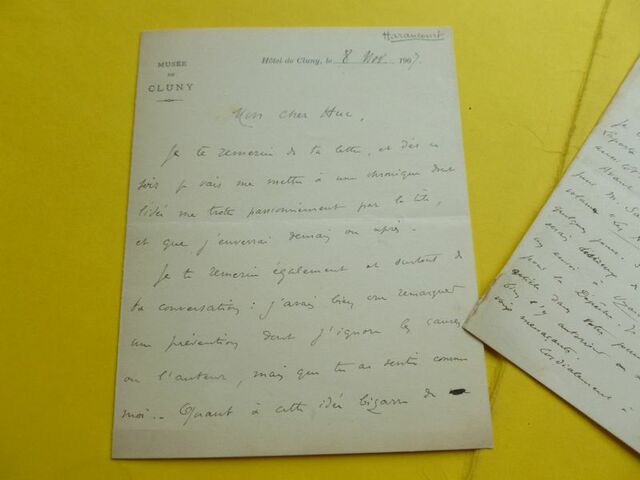 Harancourt
MUSÉE
DE
CLUNY
Hôtel de Cluny, le 8 Nov 1907.
Mon cher Huc,
Je te remercie de ta lettre, et dès ce
soir je vais me mettre à une chronique dont
l'idée me trotte passionnément par la tête,
et que j'enverrai demain ou après.
Je te remercie également et surtout de
ta conversation : j'avais bien cru remarquer
une prévention dont j'ignore les causes
ou l'auteur, mais que tu as sentie comme
moi.. Quant à cette idée bizarre de
Je
Avant
pour M.
volume
quelques
en envoi à
pour la Dépêche
article dans votre
m'y autoriser
menaçante
Cordialement à